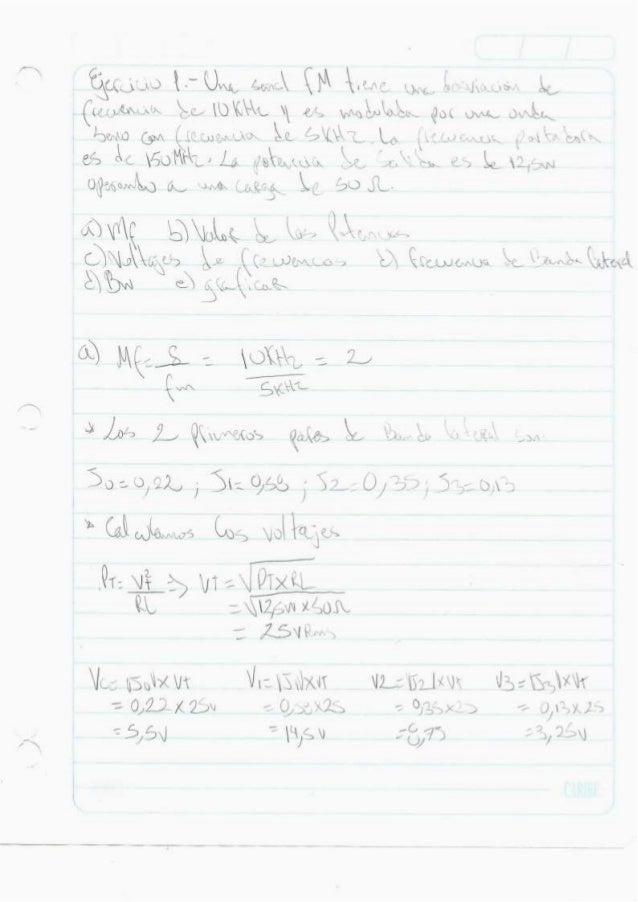 Ejercicio 1.- Una señal FM tiene una desviación de
frecuencia de 10 KHz y es modulada por una onda
seno con frecuencia de 5KHz. La frecuencia portadora
es de 150MHz. La potencia de salida es de 12,5w
operando a una carga de 50 Ω.
a) Mf b) Valor de las Potencias
c) Voltajes de frecuencias d) Frecuencia de Banda lateral
d) BW e) graficar
a) Mf = δ/fm = 10KHz/5KHz = 2
* Los 2 primeros pares de Banda lateral son:
J0=0,22 ; J1=0,58 ; J2=0,35 ; J3=0,13
* Calculamos los voltajes
PT = VT²/RL => VT = √PTxRL
= √12,5W x 50Ω
= 25VRms
Vc = |J0|xVt V1 = |J1|xVT V2 = |J2|xVt V3 = |J3|xVt
= 0,22 x 25v = 0,58x25 = 0,35x25 = 0,13x25
= 5,5v = 14,5v = 8,75 = 3,25v
CARIBE